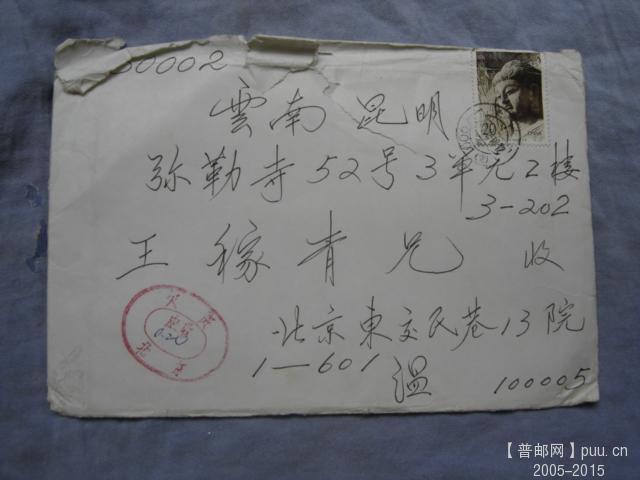 50002
雲南 昆明
弥勒寺52号3单元2楼
3-202
王稼青兄 收
北京東交民巷13院
1-601 温
100005
20
北京
【普邮网】puu.cn
2005-2015